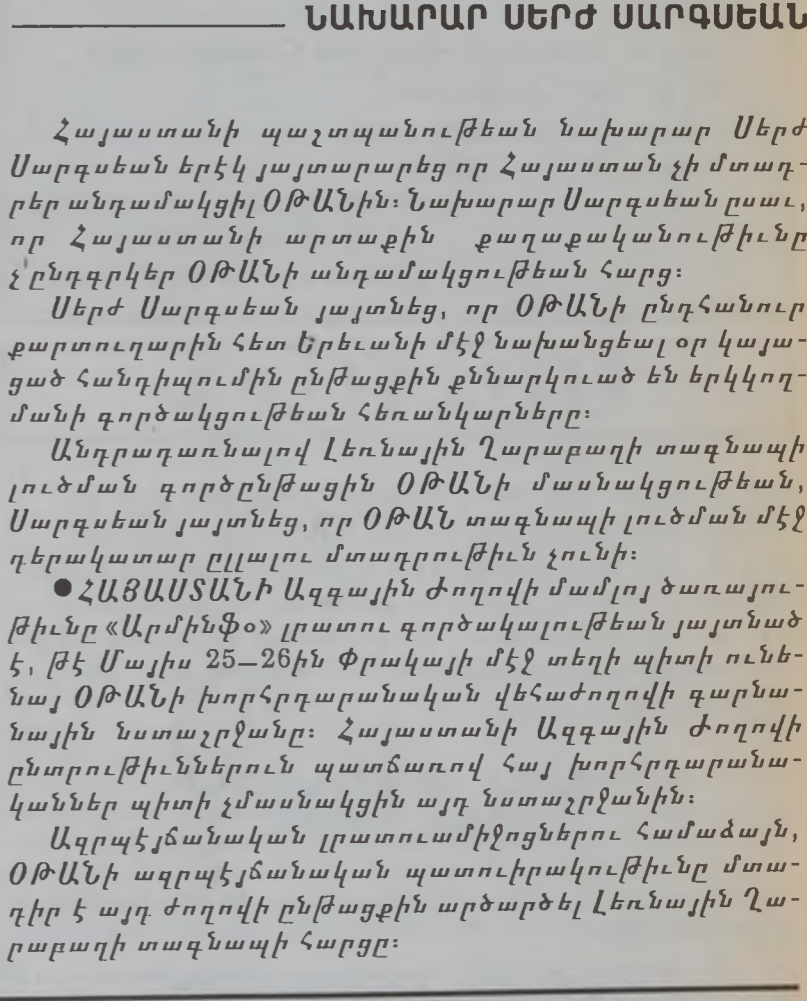 ՆԱԽԱՐԱՐ ՍԵՐԺ ՍԱՐԳՍԵԱՆ
Հայաստանի պաշտպանութեան նախարար Սերժ
Սարգսեան երէկ յայտարարեց որ Հայաստան չի մտադ-
րեր անդամակցիլ ՕԹԱՆին։ Նախարար Սարգսեան ըսաւ,
որ Հայաստանի արտաքին քաղաքականութիւնը
չ՚ընդգրկեր ՕԹԱՆի անդամակցութեան հարց։
Սերժ Սարգսեան յայտնեց, որ ՕԹԱՆի ընդհանուր
քարտուղարին հետ Երեւանի մէջ նախանցեալ օր կայա-
ցած հանդիպումին ընթացքին քննարկուած են երկկող-
մանի գործակցութեան հեռանկարները։
Անդրադառնալով Լեռնային Ղարաբաղի տագնապի
լուծման գործընթացին ՕԹԱՆի մասնակցութեան,
Սարգսեան յայտնեց, որ ՕԹԱՆ տագնապի լուծման մէջ
դերակատար ըլլալու մտադրութիւն չունի։
● ՀԱՅԱՍՏԱՆԻ Ազգային Ժողովի մամլոյ ծառայու-
թիւնը «Արմինֆօ» լրատու գործակալութեան յայտնած
է, թէ Մայիս 25—26ին Փրակայի մէջ տեղի պիտի ունե-
նայ ՕԹԱՆի խորհրդարանական վեհաժողովի գարնա-
նային նստաշրջանը։ Հայաստանի Ազգային Ժողովի
ընտրութիւններուն պատճառով հայ խորհրդարանա-
կաններ պիտի չմասնակցին այդ նստաշրջանին։
Ազրպէյճանական լրատուամիջոցներու համաձայն,
ՕԹԱՆի ազրպէյճանական պատուիրակութիւնը մտա-
դիր է այդ ժողովի ընթացքին արծարծել Լեռնային Ղա-
րաբաղի տագնապի հարցը։